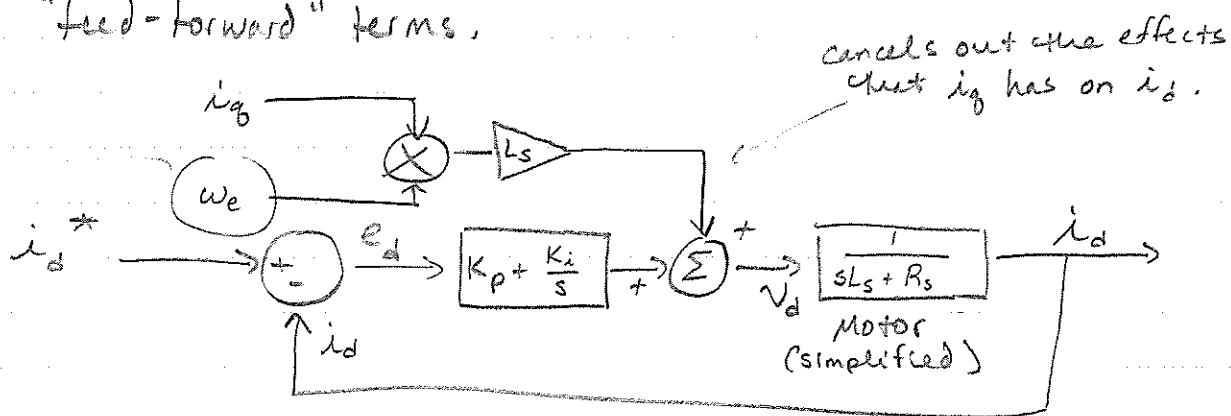 "feed-forward" terms.
cancels out the effects
that iq has on id.
iq
Ls
ωe
id*
+
-
ed
Kp + Ki/s
+
Σ
+
vd
1/(sLs + Rs)
id
Motor
(simplified)
id